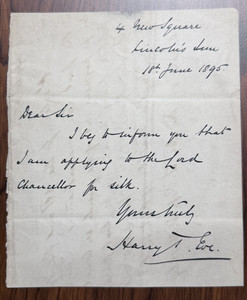 4 New Square
Lincoln's Inn
18th June 1895.
Dear Sir
I beg to inform you that
I am applying to the Lord
Chancellor for silk.
Yours truly
Harry T. Eve.